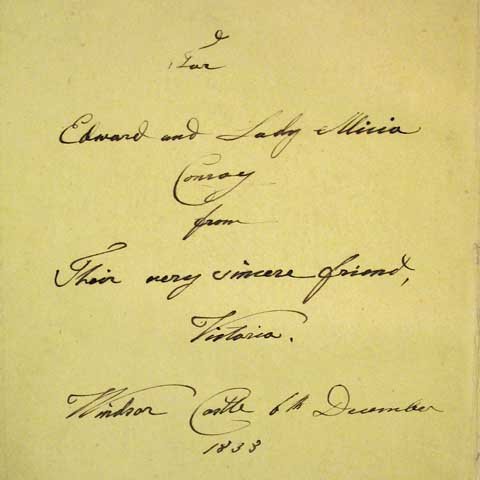 For
Edward and Lady Alicia
Conroy
from
Their very sincere friend,
Victoria.
Windsor Castle 6th December
1838